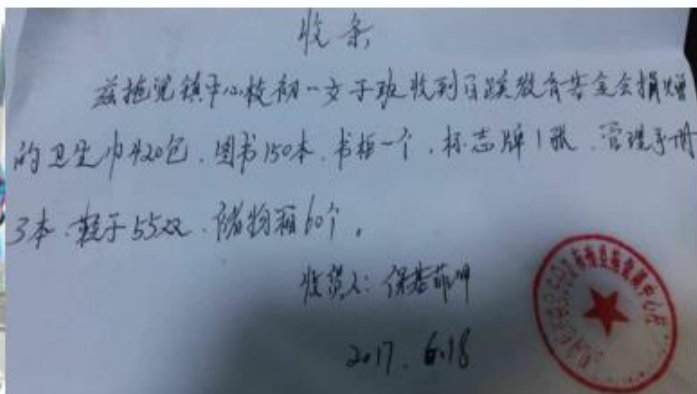 收条
兹拖觉镇中心校初一女子班收到百蹊教育基金会捐赠
的卫生巾420包、图书150本、书柜一个、标志牌1张、管理手册
3本、鞋子55双、储物箱60个。
收货人:
2017.6.18